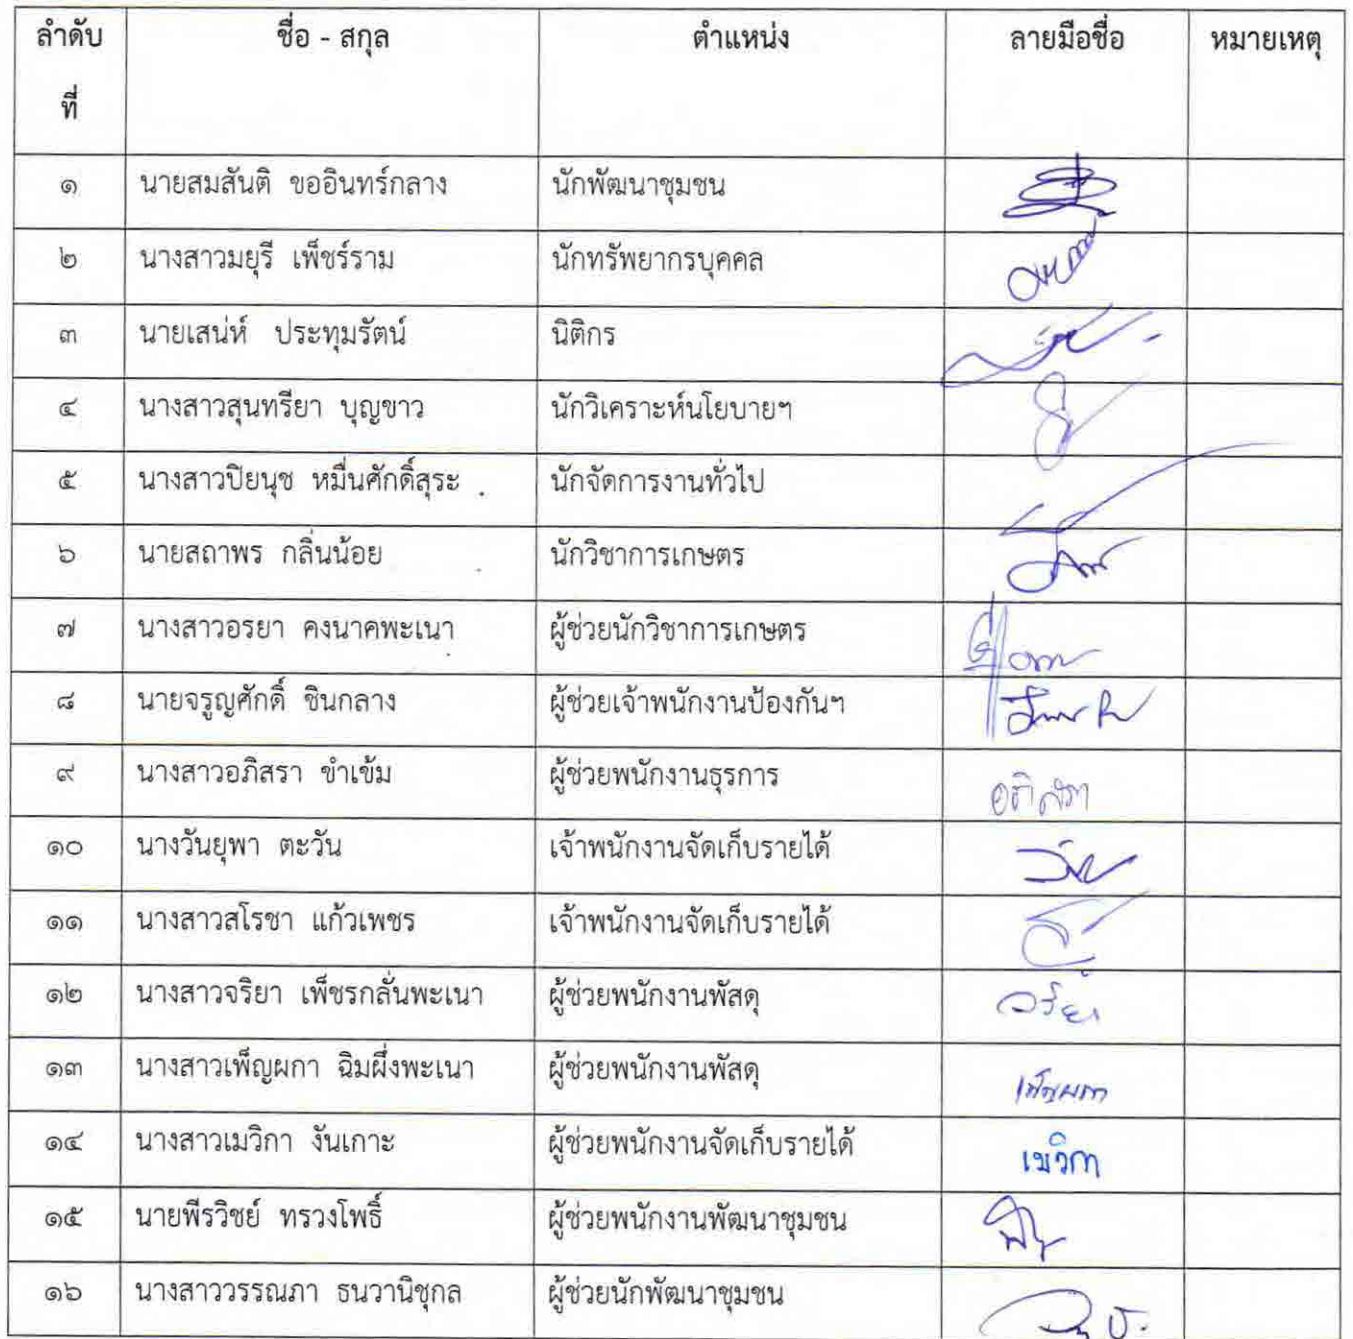 ลำดับที่ ชื่อ - สกุล ตำแหน่ง ลายมือชื่อ หมายเหตุ
๑ นายสมสันติ ขออินทร์กลาง นักพัฒนาชุมชน
๒ นางสาวมยุรี เพ็ชร์ราม นักทรัพยากรบุคคล
๓ นายเสน่ห์ ประทุมรัตน์ นิติกร
๔ นางสาวสุนทรียา บุญขาว นักวิเคราะห์นโยบายฯ
๕ นางสาวปิยนุช หมื่นศักดิ์สุระ นักจัดการงานทั่วไป
๖ นายสถาพร กลิ่นน้อย นักวิชาการเกษตร
๗ นางสาวอรยา คงนาคพะเนา ผู้ช่วยนักวิชาการเกษตร
๘ นายจรูญศักดิ์ ชินกลาง ผู้ช่วยเจ้าพนักงานป้องกันฯ
๙ นางสาวอภิสรา ขำเข้ม ผู้ช่วยพนักงานธุรการ อภิสรา
๑๐ นางวันยุพา ตะวัน เจ้าพนักงานจัดเก็บรายได้
๑๑ นางสาวสโรชา แก้วเพชร เจ้าพนักงานจัดเก็บรายได้
๑๒ นางสาวจริยา เพ็ชรกลั่นพะเนา ผู้ช่วยพนักงานพัสดุ จริยา
๑๓ นางสาวเพ็ญผกา ฉิมผึ่งพะเนา ผู้ช่วยพนักงานพัสดุ เพ็ญผกา
๑๔ นางสาวเมวิกา งันเกาะ ผู้ช่วยพนักงานจัดเก็บรายได้ เมวิกา
๑๕ นายพีรวิชย์ ทรวงโพธิ์ ผู้ช่วยพนักงานพัฒนาชุมชน
๑๖ นางสาววรรณภา ธนวานิชุกล ผู้ช่วยนักพัฒนาชุมชน